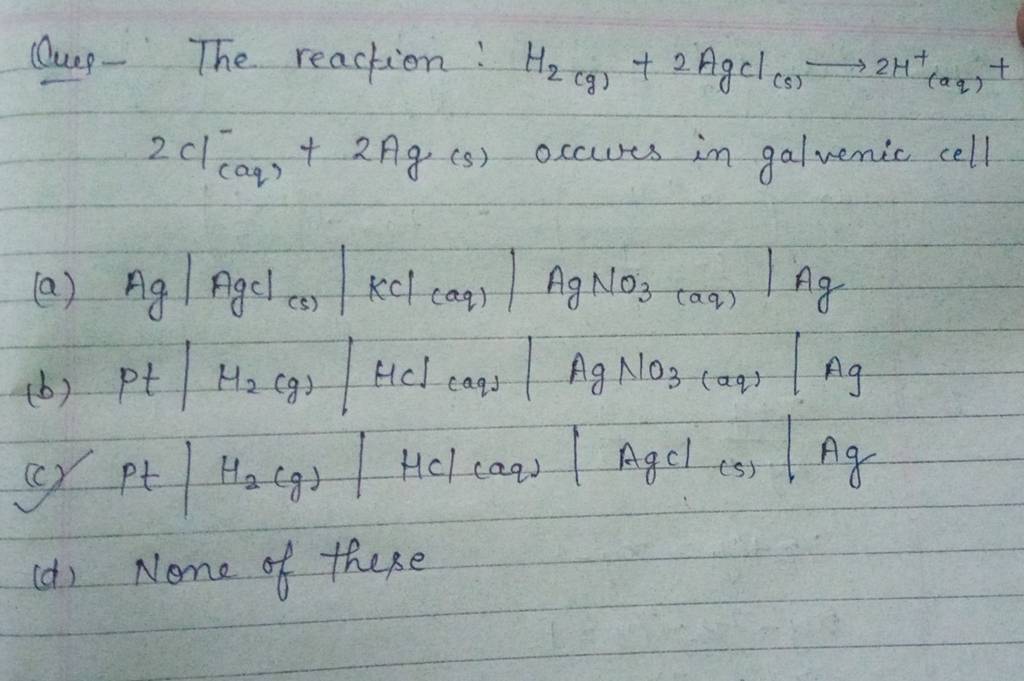 Ques - The reaction : H₂ (g) + 2Agcl (s) → 2H⁺ (aq) +
2cl⁻ (aq) + 2Ag (s) occures in galvenic cell
(a) Ag | Agcl (s) | Kcl (aq) | AgNO₃ (aq) | Ag
(b) pt | H₂ (g) | Hcl (aq) | AgNO₃ (aq) | Ag
(c) pt | H₂ (g) | Hcl (aq) | Agcl (s) | Ag
(d) None of these